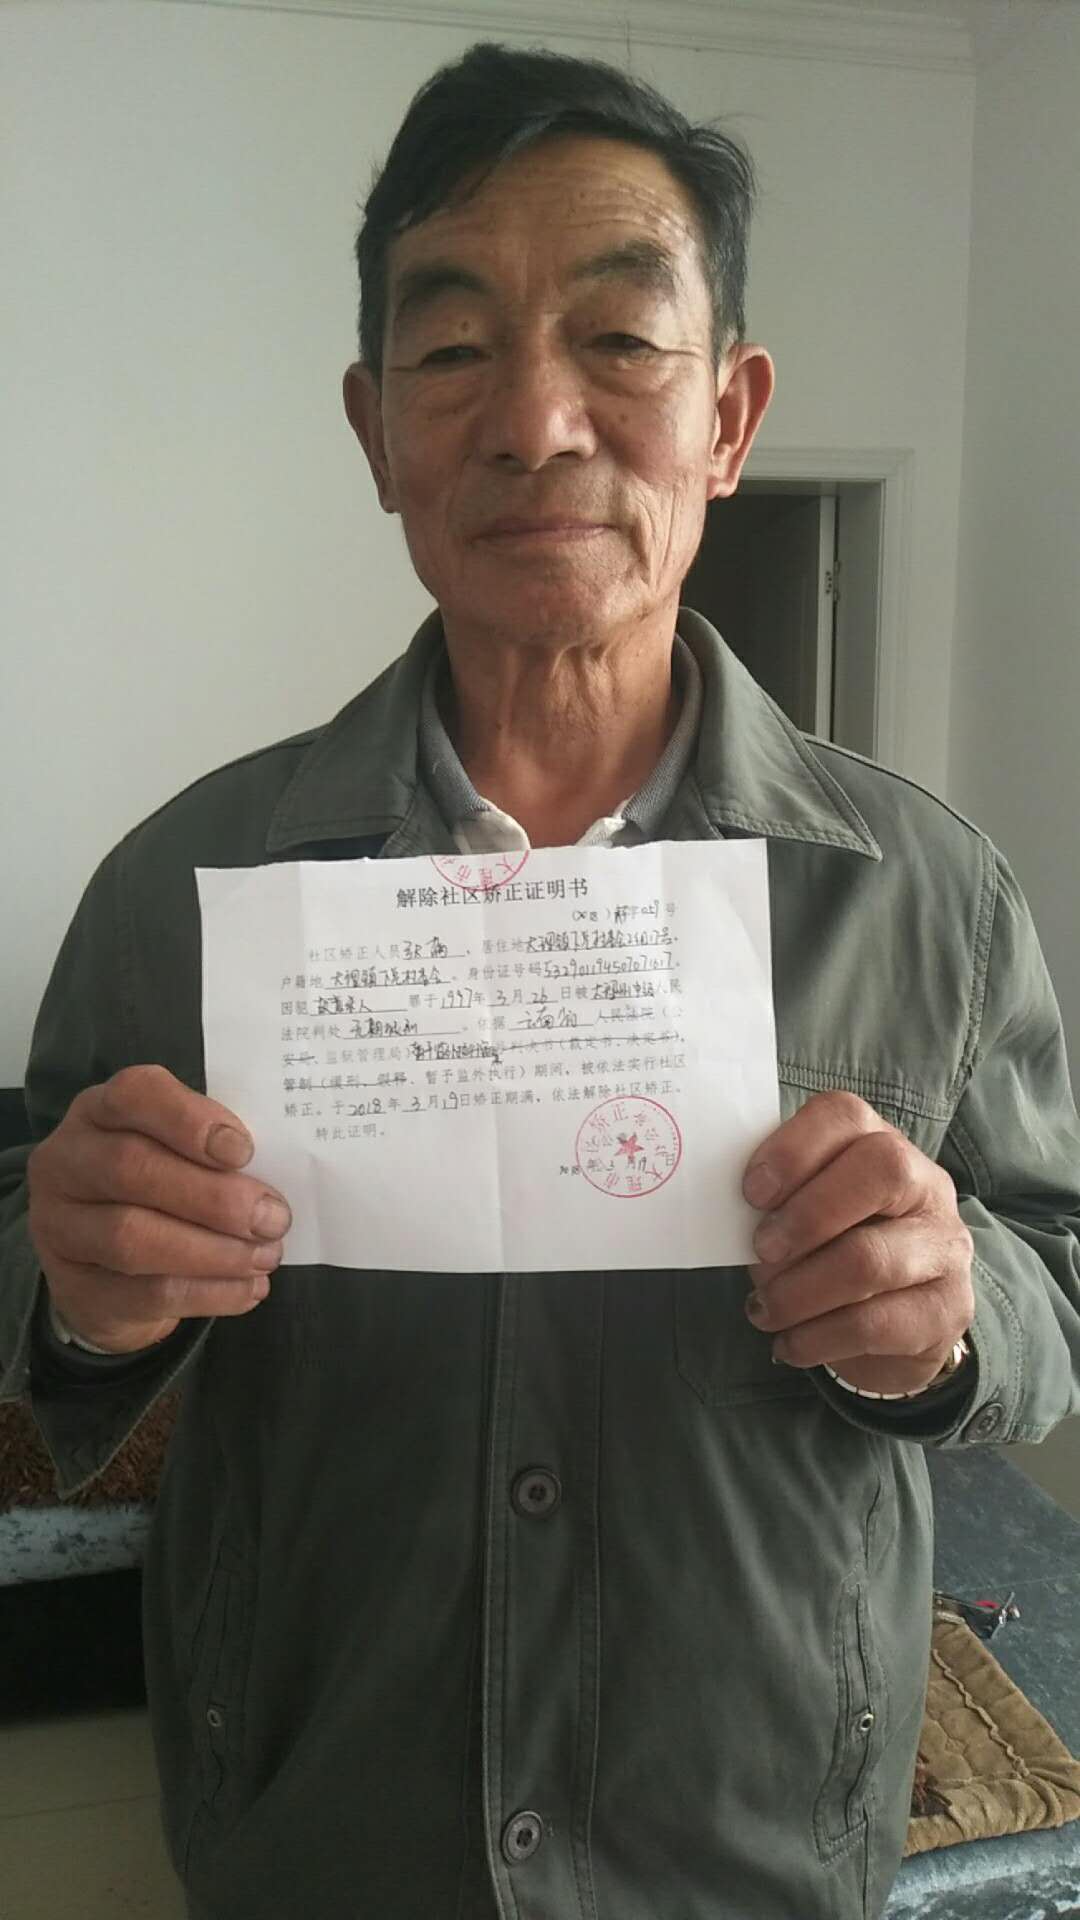 解除社区矫正证明书
(2018)解字029号
社区矫正人员张满,居住地大理镇下兑村委会2组17号,
户籍地大理镇下兑村委会。身份证号码532901194507071617。
因犯故意杀人罪于1997年3月26日被大理州中级人民
法院判处无期徒刑。依据云南省人民法院(公
安局、监狱管理局)判决书(裁定书、决定书),
管制(缓刑、假释、暂予监外执行)期间,被依法实行社区
矫正。于2018年3月19日矫正期满,依法解除社区矫正。
特此证明。
2018年3月19日